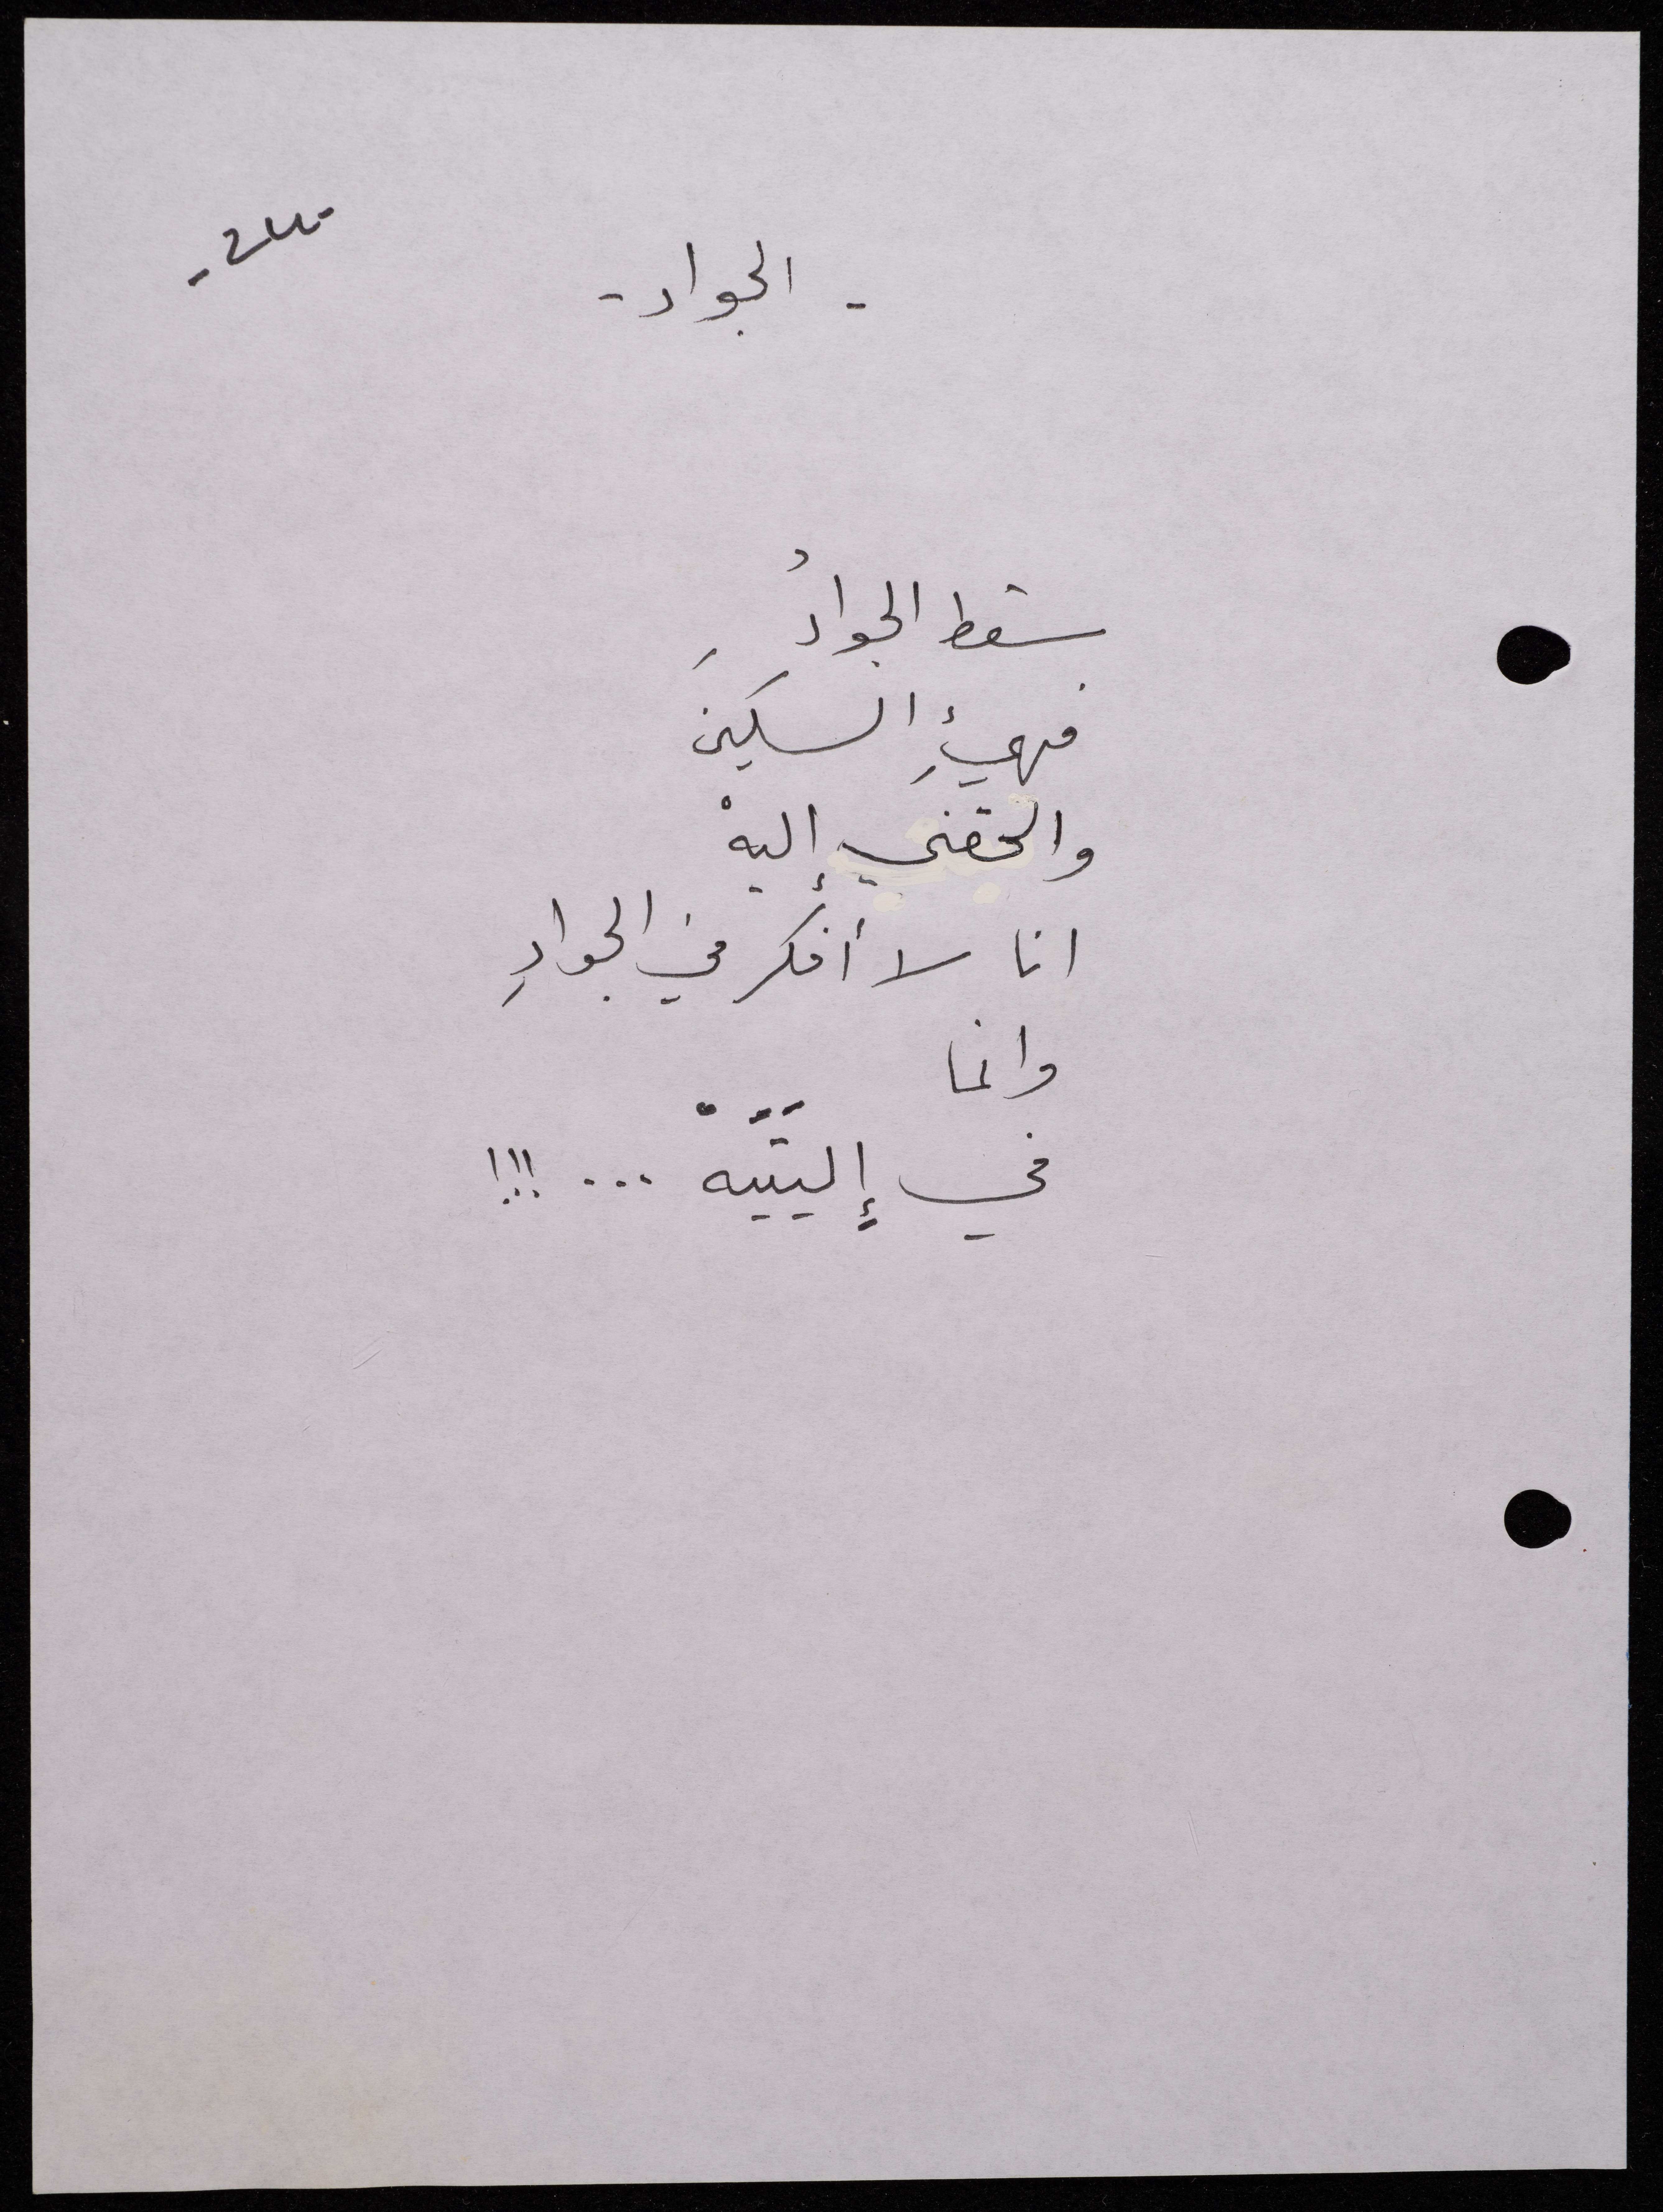 - الجواد -
سقط الجوادُ
فهيئِ السكينَ
والحقني إليهْ
انا لا أفكر في الجوادِ
وانما
في إليتَيَهْ ... !!!